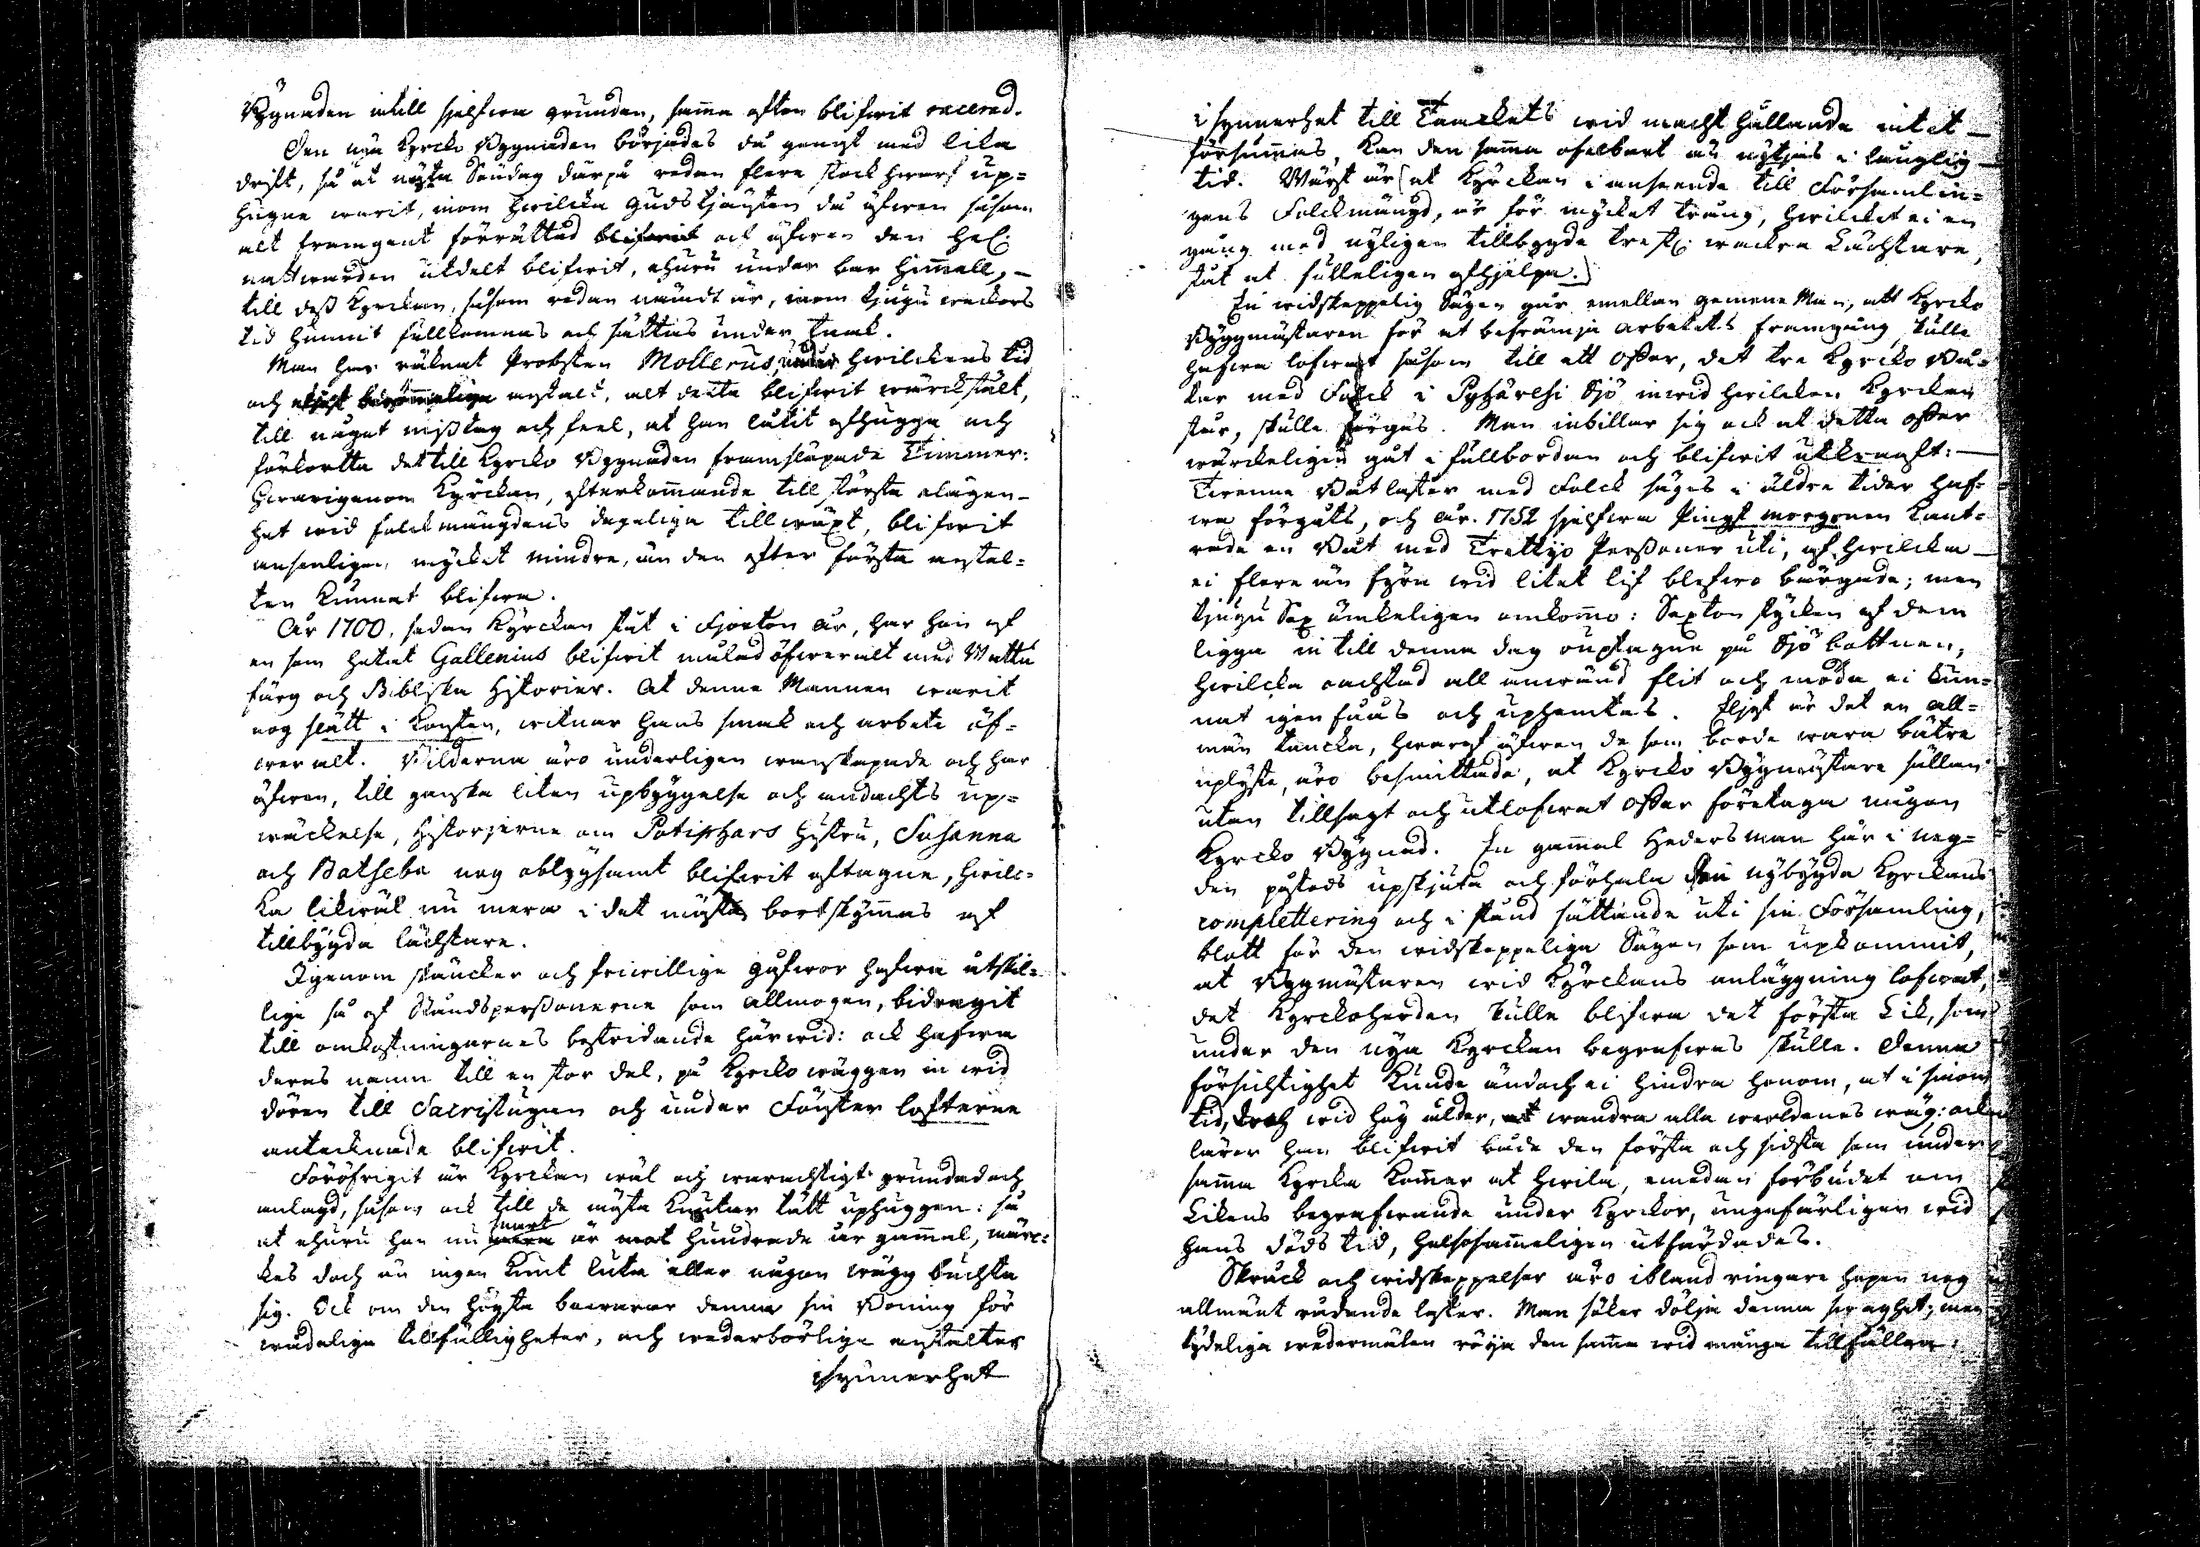 Bygnaden intill sjelfwa grunden, samma afton blifwit raserad.
Den nya Kyrcko Bygnaden börjades då genast med lika
drift, så at nästa Söndag därpå redan flere stock hwarf up=
hugne warit, inom hwilcka Gudstjänsten då äfwen såsom
alt framgent förrättad blifwit ock äfwen den Hel.
nattwarden utdelt blifwit, ehuru under bar himmell,
till dess Kyrckan, såsom redan nämdt är, inom tjugu weckors
tid hunnit fullkomnas och sättas under taak.
Man har räknat Probsten Mollerus, under hwilckens tid
och anstalt, alt detta blifwit wärckstält,
till något misstag och feel, at han låtit afhugga och
förkortta det till Kyrcko Bygnaden framsläpade Timmer:
hwarigenom Kyrckan, efterkommande till största olägen-
het wid folckmängdens dageliga tillwäxt, blifwit
ansenligen mycket mindre, än den efter första anstal=
ten kunnat blifwa.
År 1700, sedan Kyrckan stått i Fjorton år, har hon af
en som hetat Gallenius blifwit målad öfweralt med Wattu
färg och Bibliska Historier. At denne Mannen warit
nog slätt i Konsten, witnar hans smak och arbete öf=
wer alt. Bilderna äro underligen wanskapade och har
äfwen, till ganska liten upbyggelse och andachts up=
wäckelse, Historjerne om Potiphars Hustru, Susanna
och Batseba nog oblygsamt blifwit aftagne, hwilc=
ka likwäl nu mera i det mästa bortskymmes af
tillbygda lächtare.
Igenom skäncker och friwillige gåfwor hafwa åtskil=
lige så af Ståndspersonerne som allmogen, bidragit
till omkostningarnes bestridande härwid: ock hafwa
deras namn till en stor del, på Kyrcko wäggen in wid
dören till Sacristugun och under Fönster lofterne
antecknade blifwit.
Föröfrigit är Kyrckan wäl och warachtigt grundad och
anlagd, såsom ock till de mästa knutar tätt uphuggen: så
at ehuru hon nu snart är hundrade år gammal, märc=
kes doch än ingen knut luta eller någon wägg buchta
sig. Ock om den Högsta bewarar denna sin Boning för
wådeliga tillfälligheter, och wederbörlige anstalter
isynnerhet
isynnerhet till Taackets wid macht hållande intet
försummas, kan den samma ofelbart än nytjas i långlig
tid. Wärst är (at Kyrckan i anseende till Församlin=
gens Folckmängd, är för mycket trång, hwilcket ei en
gång med nyligen tillbygde tre st. wackra Lächtare,
stått at fulleligen afhjelpa.)
En widskeppelig Sägen går emellan gemene Man, att Kyrcko
Byggmästaren för at befrämja arbetets framgång, skulle
hafwa lofwat såsom till ett offer, det tre Kyrcko Bå=
tar med Folck i Pyhäselsi Sjö inwid hwilcken Kyrckan
står, skulle förgås. Man inbillar sig ock at detta offer
wärckeligen gåt i fullbordan och blifwit utkraft:
Twenne Båtlaster med Folck säges i äldre tider haf=
wa förgåts, och år 1752 sjelfwa Pingst morgonen kant=
rade en Båt med Trettijo Personer uti, af hwilcka
ei flere än fyra wid litet lif blefwo bärgade; men
tjugu Sex ömkeligen omkommo: Sexton stycken af dem
ligga in till denna dag ouptagne på Sjö bottnen,
hwilcka oachtad all anwänd flit och möda ei kun=
nat igen fåås och uphemtas. Eljest är det en all=
män tancka, hwaraf äfwen de som borde wara bätre
uplyste, äro besmittade, at Kyrcko Bygmästare sällan
utan tillsagt och utlofwat offer företaga någon
Kyrcko Bygnad. En gammal Hedersman här i neg=
den påstods upskjuta och förhala den nybygda Kyrckans
complettering och i stånd sättande uti sin Församling,
blott för den widskeppeliga Sägen som upkommit,
at Bygmästaren wid Kyrckans anläggning lofwat,
det Kyrckoherden skulle blifwa det första Lik, som
under den nya Kyrckan begrafwas skulle. Denna
försichtighet kunde ändoch ei hindra honom, at i sinom
tid, doch wid hög ålder, wandra alla werldenes wäg: ock
lärer han blifwit både den första och sidsta som under
samma Kyrcka kommer at hwila, emedan förbudet om
Likens begrafwande under Kyrckor, ungefärligen wid
hans döds tid, helsosammeligen utfärdades.
Skråck och widskeppelser äro ibland ringare hopen nog
allmänt rådande laster. Man söker dölja denna swaghet; men
tydeliga wedermälen röja den samma wid många tillfällen: